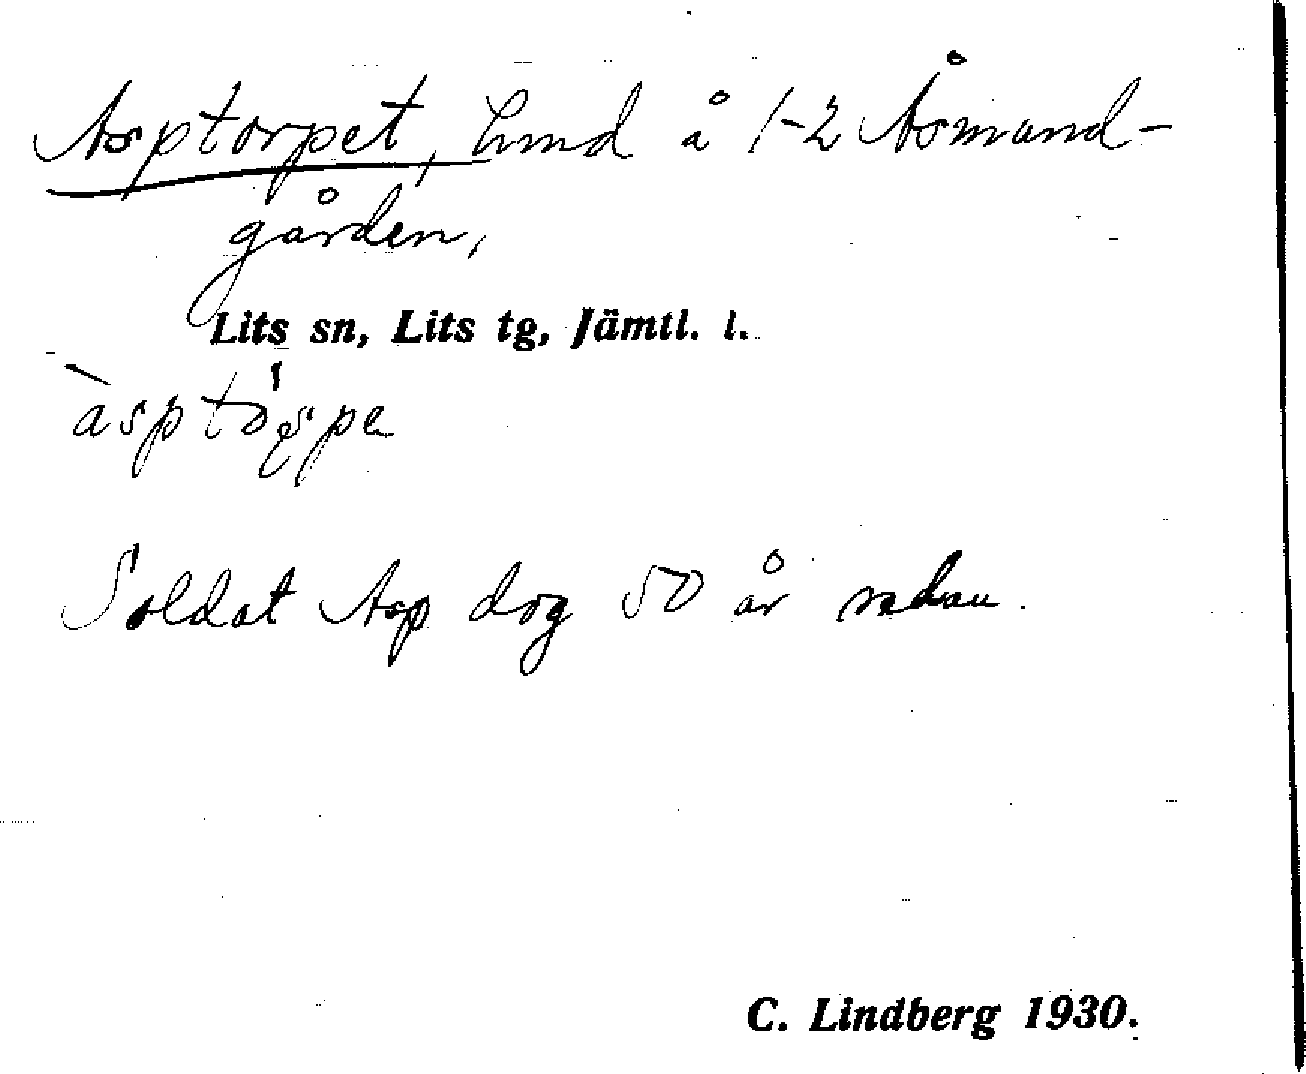 Asptorpet, lund å 1-2 Åsmund-
gården,
Lits sn, Lits tg, Jämtl. l.
àsptòspe
Soldat Asp dog 50 år sedan.
C. Lindberg 1930.